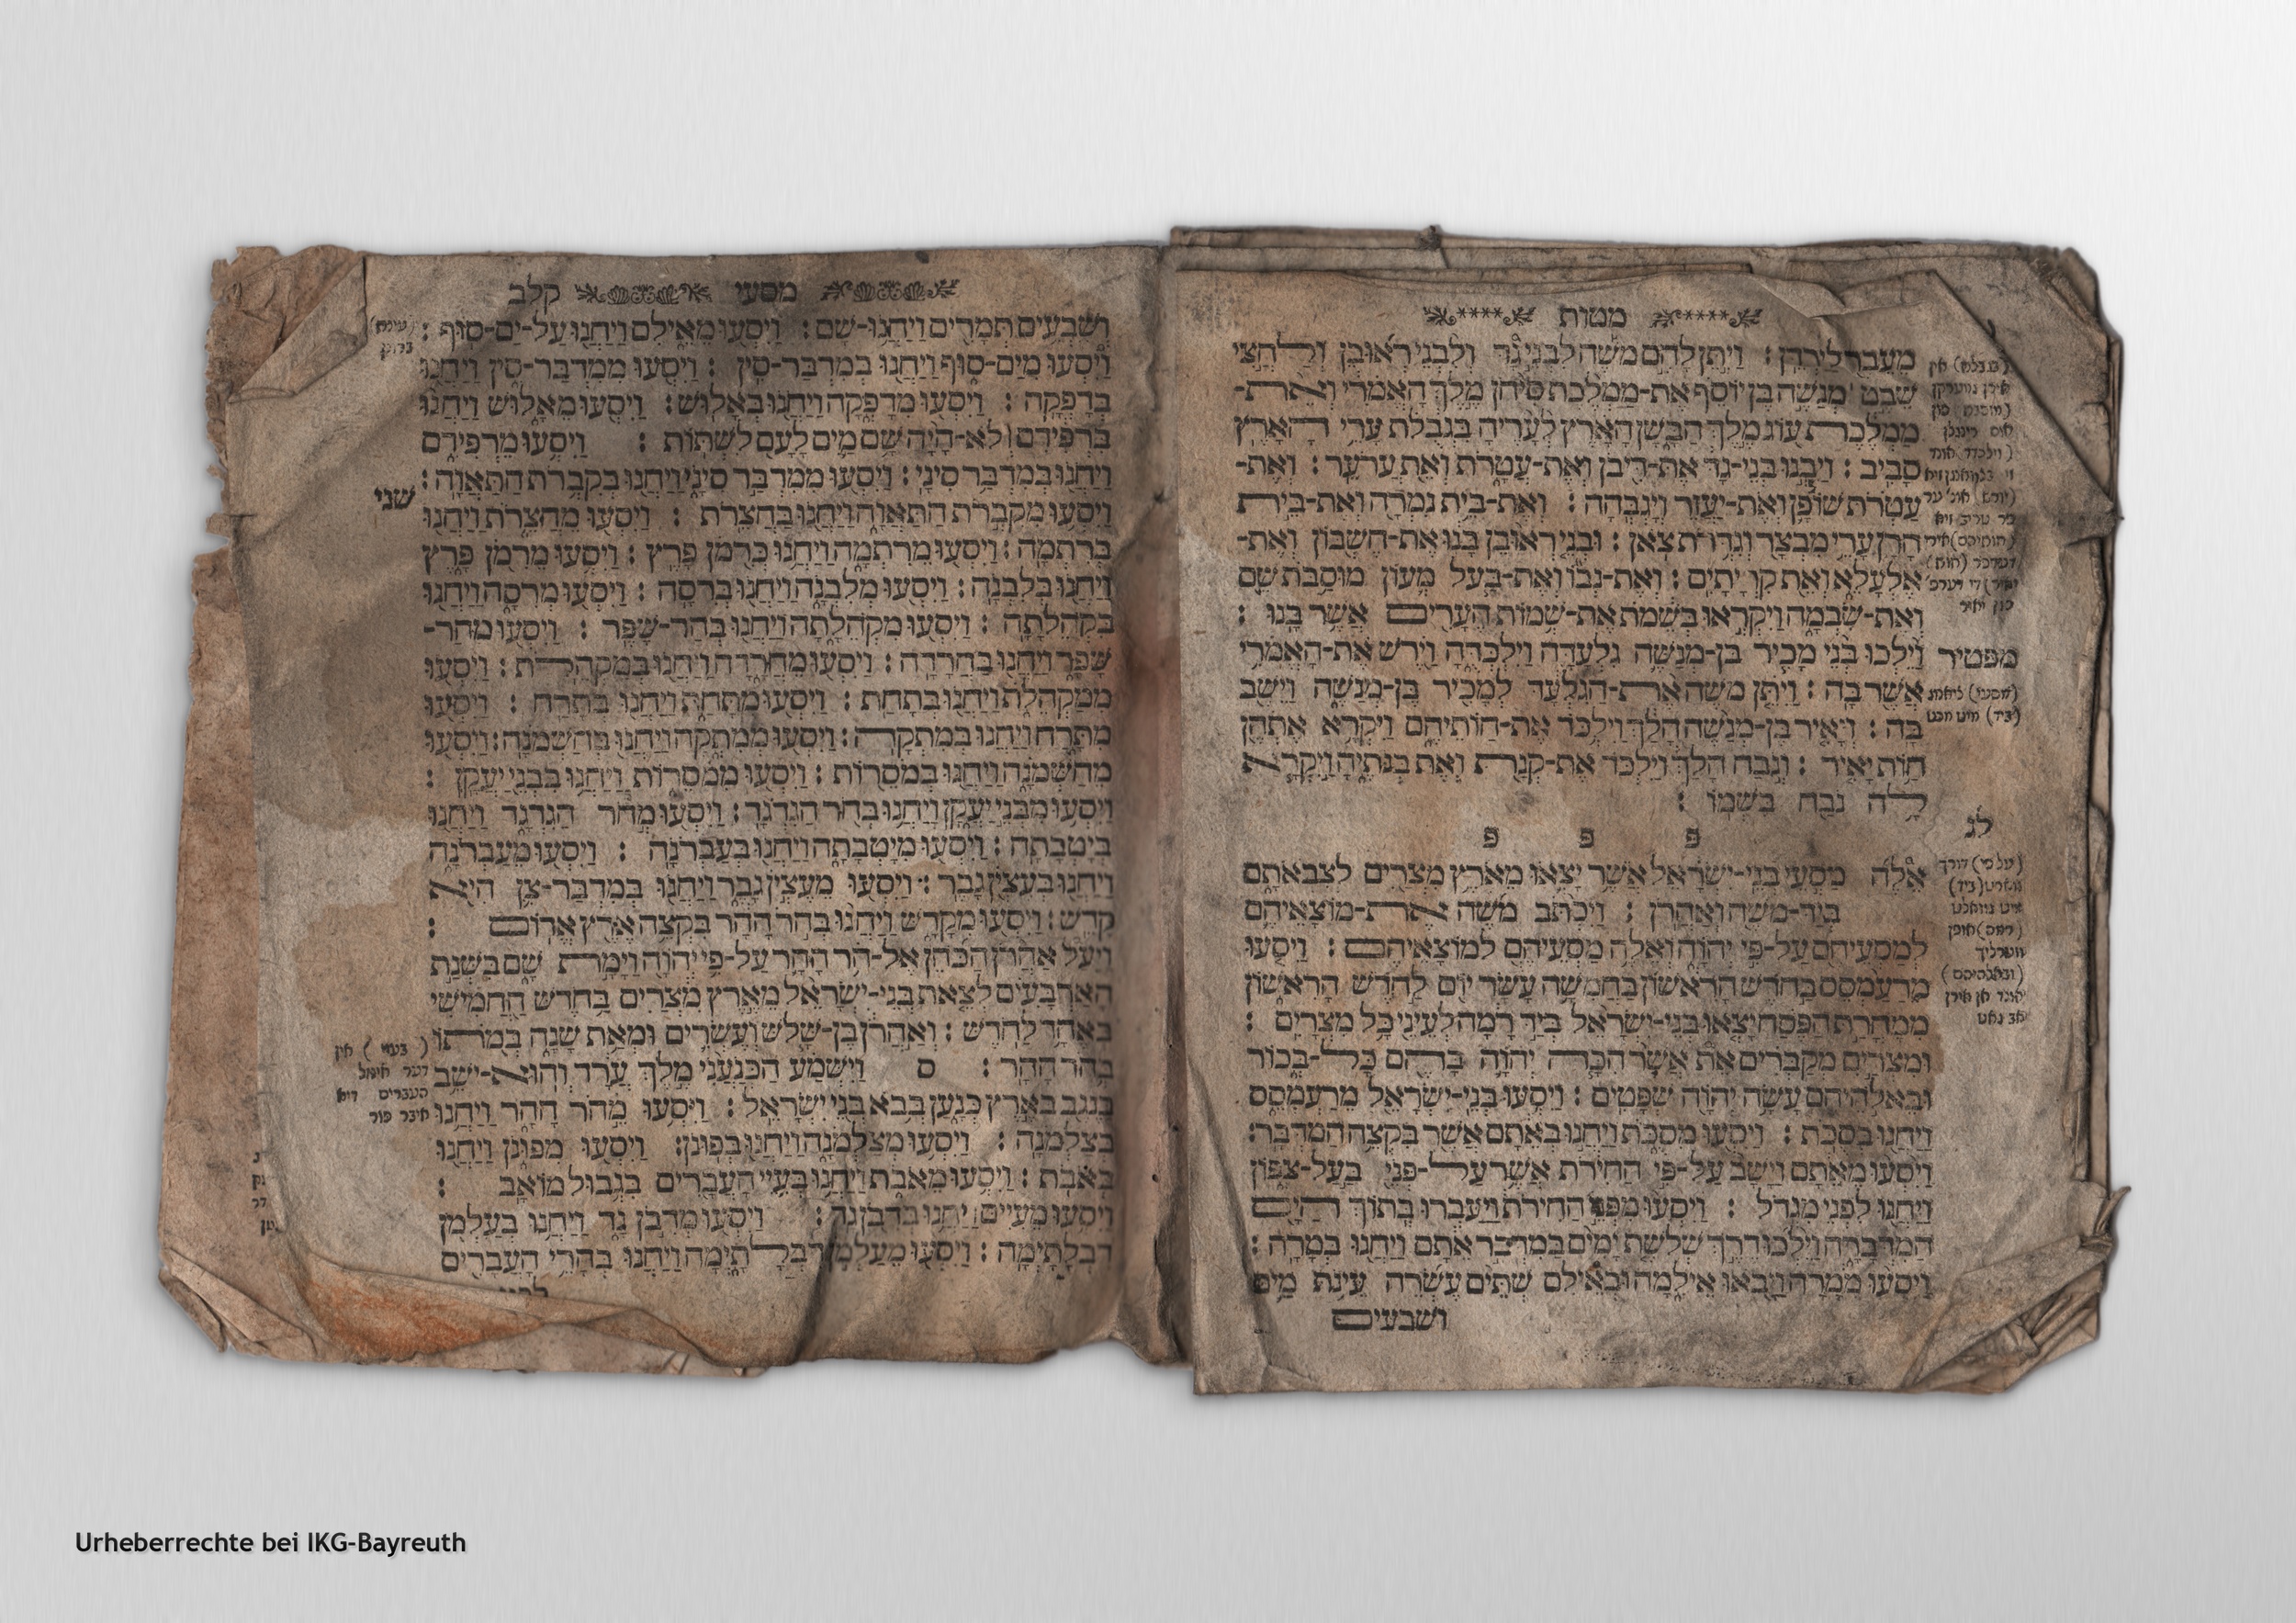 מטות
מעבר לירדן : ויתן להם משה לבני גד ולבני ראובן ולחצי
שבט מנשה בן יוסף את-ממלכת סיחן מלך האמרי ואת-
ממלכת עוג מלך הבשן הארץ לעריה בגבלת ערי הארץ
סביב : ויבנו בני-גד את-דיבן ואת-עטרת ואת ערער : ואת-
עטרת שופן ואת-יעזר ויגבהה : ואת-בית נמרה ואת-בית
הרן ערי מבצר וגדרת צאן : ובני ראובן בנו את-חשבון ואת-
אלעלא ואת קריתים : ואת-נבו ואת-בעל מעון מוסבת שם
ואת-שבמה ויקראו בשמת את-שמות הערים אשר בנו :
וילכו בני מכיר בן-מנשה גלעדה וילכדה ויורש את-האמרי
מפטיר
אשר בה : ויתן משה את-הגלעד למכיר בן-מנשה וישב
בה : ויאיר בן-מנשה הלך וילכד את-חותיהם ויקרא אתהן
חות יאיר : ונבח הלך וילכד את-קנת ואת בנתיה ויקרא
לה נבח בשמו :
פ פ פ
לג
אלה מסעי בני-ישראל אשר יצאו מארץ מצרים לצבאתם
ביד-משה ואהרן : ויכתב משה את-מוצאיהם
למסעיהם על-פי יהוה ואלה מסעיהם למוצאיהם : ויסעו
מרעמסס בחדש הראשון בחמשה עשר יום לחדש הראשון
ממחרת הפסח יצאו בני-ישראל ביד רמה לעיני כל מצרים :
ומצרים מקברים את אשר הכה יהוה בהם כל-בכור
ובאלהיהם עשה יהוה שפטים : ויסעו בני-ישראל מרעמסס
ויחנו בסכת : ויסעו מסכת ויחנו באתם אשר בקצה המדבר :
ויסעו מאתם וישב על-פי החירת אשר על-פני בעל-צפון
ויחנו לפני מגדל : ויסעו מפני החירת ויעברו בתוך הים
המדברה וילכו דרך שלשת ימים במדבר אתם ויחנו במרה :
ויסעו ממרה ויבאו אילמה ובאילם שתים עשרה עינת מים
ושבעים
מסעי קלב
ושבעים תמרים ויחנו-שם : ויסעו מאילם ויחנו על-ים-סוף :
ויסעו מים-סוף ויחנו במדבר-סין : ויסעו ממדבר-סין ויחנו
בדפקה : ויסעו מדפקה ויחנו באלוש : ויסעו מאלוש ויחנו
ברפידם ולא-היה שם מים לעם לשתות : ויסעו מרפידם
ויחנו במדבר סיני : ויסעו ממדבר סיני ויחנו בקברת התאוה :
שני
ויסעו מקברת התאוה ויחנו בחצרת : ויסעו מחצרת ויחנו
ברתמה : ויסעו מרתמה ויחנו ברמן פרץ : ויסעו מרמן פרץ
ויחנו בלבנה : ויסעו מלבנה ויחנו ברסה : ויסעו מרסה ויחנו
בקהלתה : ויסעו מקהלתה ויחנו בהר-שפר : ויסעו מהר-
שפר ויחנו בחרדה : ויסעו מחרדה ויחנו במקהלת : ויסעו
ממקהלת ויחנו בתחת : ויסעו מתחת ויחנו בתרח : ויסעו
מתרח ויחנו במתקה : ויסעו ממתקה ויחנו בחשמנה : ויסעו
מחשמנה ויחנו במסרות : ויסעו ממסרות ויחנו בבני יעקן :
ויסעו מבני יעקן ויחנו בחר הגדגד : ויסעו מחר הגדגד ויחנו
ביטבתה : ויסעו מיטבתה ויחנו בעברנה : ויסעו מעברנה
ויחנו בעצין גבר : ויסעו מעצין גבר ויחנו במדבר-צן היא
קדש : ויסעו מקדש ויחנו בהר ההר בקצה ארץ אדום :
ויעל אהרן הכהן אל-הר ההר על-פי יהוה וימת שם בשנת
הארבעים לצאת בני-ישראל מארץ מצרים בחדש החמישי
באחד לחדש : ואהרן בן-שלש ועשרים ומאת שנה במתו
בהר ההר : ס וישמע הכנעני מלך ערד והוא-ישב
בנגב בארץ כנען בבא בני ישראל : ויסעו מהר ההר ויחנו
בצלמנה : ויסעו מצלמנה ויחנו בפונן : ויסעו מפונן ויחנו
באבת : ויסעו מאבת ויחנו בעיי העברים בגבול מואב :
ויסעו מעיים ויחנו בדבן גד : ויסעו מדבן גד ויחנו בעלמן
דבלתימה : ויסעו מעלמן דבלתימה ויחנו בהרי העברים
Urheberrechte bei IKG-Bayreuth